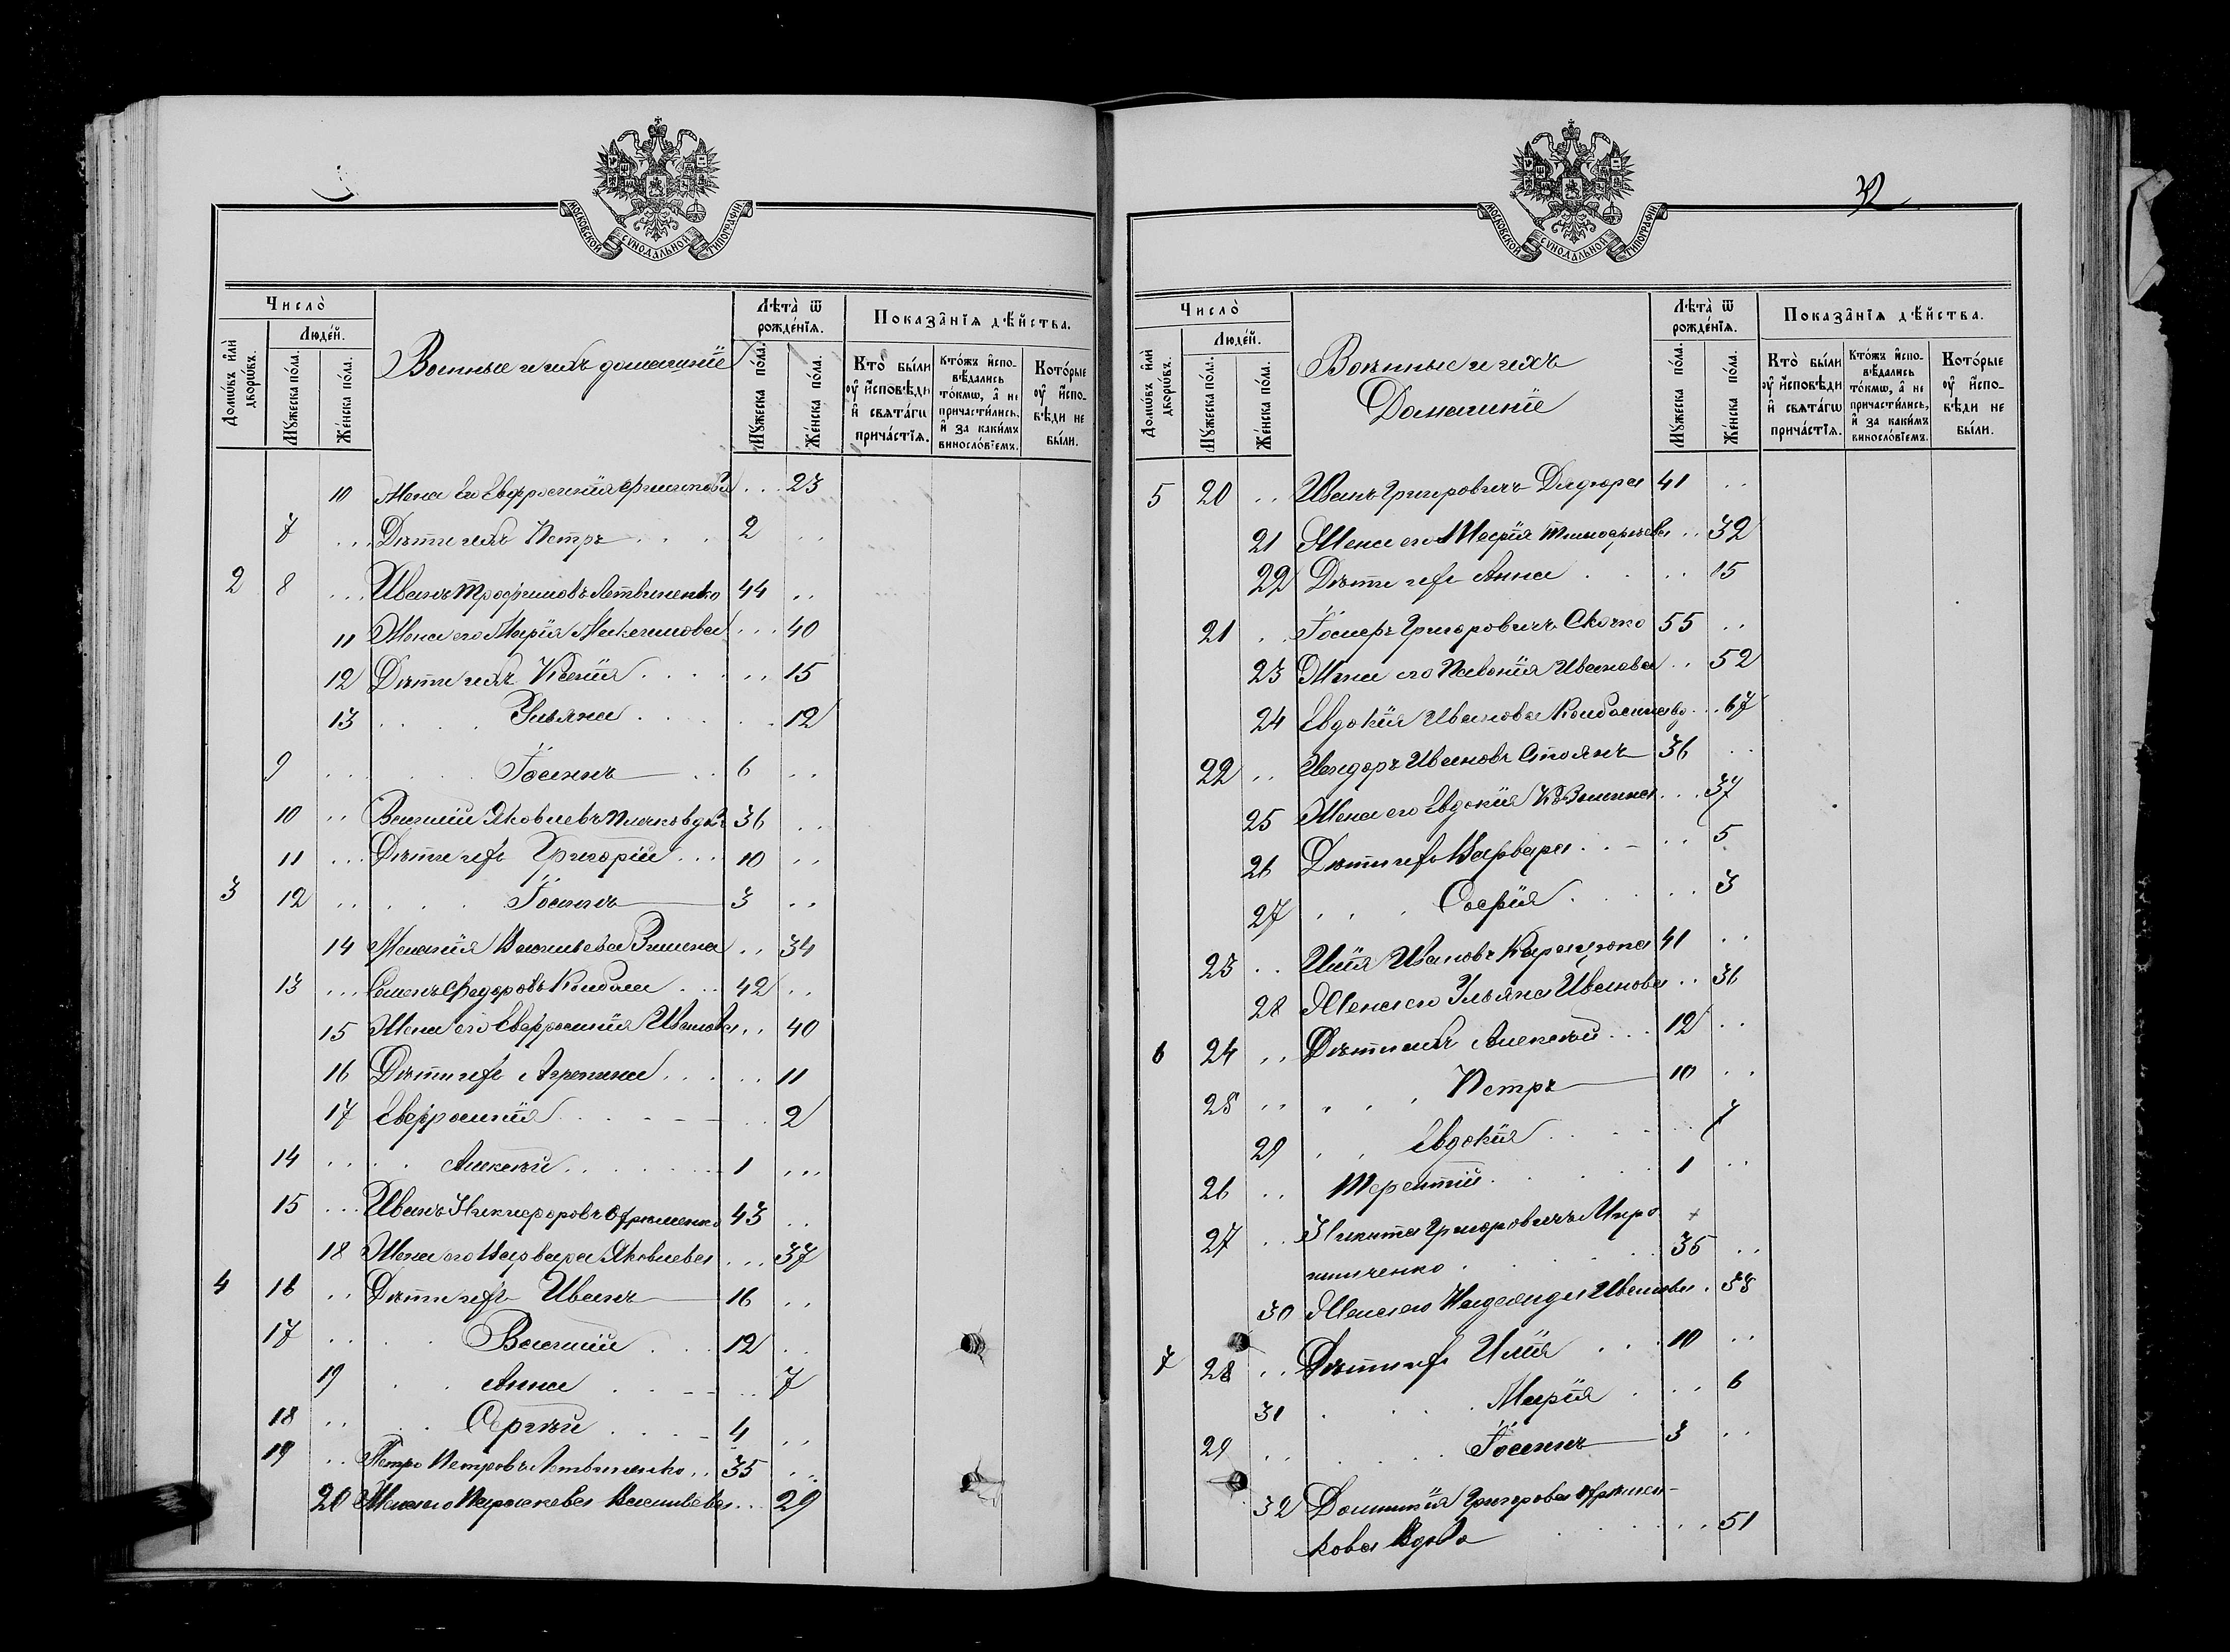 МОСКОВСКОЙ СУНОДАЛЬНОЙ ТИПОГРАФІИ
Число̀
Домѡ́въ и҆лѝ дворѡ́въ.
Люде́й.
Мꙋ́жеска по́ла.
Же́нска по́ла.
Военные и ихъ домашніе
Лѣ́та ѿ рожде́нїѧ.
Мꙋ́жеска по́ла.
Же́нска по́ла.
Показа̑нїѧ дѣ́йства.
Кто̀ бы́ли ᲂу҆ и҆́сповѣди и҆ свѧта́гѡ прича́стїѧ.
Кто́жъ и҆спо-вѣ́дались то́кмѡ, а҆ не причасти́лись, и҆ за каки́мъ винослѡ́вїемъ.
Кото́рые ᲂу҆ и҆́спо-вѣди не бы́ли.
10 Жена его Евфросинія .. 23
7 .. Дѣти ихъ Петръ 2 ..
2 8 .. Иванъ Трофимовъ Литвиненко 44 ..
11 Жена его Марія Максимова .. 40
12 Дѣти ихъ Ксенія .. 15
13 Ульяна .. 12
9 .. Іоаннъ 6 ..
10 .. Василій Яковлевъ вдовъ 36 ..
11 .. Дѣти его Григорій 10 ..
3 12 .. Іоаннъ 3 ..
14 Меланія Васильева .. 34
13 .. Семенъ Федоровъ Колбаса 42 ..
15 Жена его Евфросинія Иванова .. 40
16 Дѣти ихъ Агрепина .. 11
17 Евфросинія .. 2
14 .. Алексѣй 1 ..
15 .. Иванъ Никифоровъ Ефременко 43 ..
18 Жена его Варвара Яковлева .. 37
4 16 .. Дѣти ихъ Иванъ 16 ..
17 .. Василій 12 ..
19 Анна .. 7
18 .. Сергѣй 4 ..
19 .. Петро Петровъ Литвиненко 35 ..
20 Жена его Параскева Васильева .. 29
32
МОСКОВСКОЙ СУНОДАЛЬНОЙ ТИПОГРАФІИ
Число̀
Домѡ́въ и҆лѝ дворѡ́въ.
Люде́й.
Мꙋ́жеска по́ла.
Же́нска по́ла.
Военные и ихъ
Домашніе
Лѣ́та ѿ рожде́нїѧ.
Мꙋ́жеска по́ла.
Же́нска по́ла.
Показа̑нїѧ дѣ́йства.
Кто̀ бы́ли ᲂу҆ и҆́сповѣди и҆ свѧта́гѡ прича́стїѧ.
Кто́жъ и҆спо-вѣ́дались то́кмѡ, а҆ не причасти́лись, и҆ за каки́мъ винослѡ́вїемъ.
Кото́рые ᲂу҆ и҆́спо-вѣди не бы́ли.
5 20 .. Иванъ Григоровичъ Дядюра 41 ..
21 Жена его Марія Тимофѣева .. 32
22 Дѣти ихъ Анна .. 15
21 .. Григоровичъ Скочко 55 ..
23 Жена его Иванова .. 52
24 Евдокія Иванова .. 67
22 .. Исидоръ Ивановъ Стоянъ 36 ..
25 Жена его Евдокія .. 37
26 Дѣти ихъ Варвара .. 5
27 Софія .. 3
23 .. Илія Ивановъ 41 ..
28 Жена его Ульяна Иванова .. 36
6 24 .. Дѣти ихъ Алексѣй 12 ..
25 .. Петръ 10 ..
29 Евдокія .. 7
26 .. Терентій 1 ..
27 .. Никита Григоровичъ Миро
шниченко 35 ..
30 Жена его Надежда Иванова .. 33
7 28 .. Дѣти ихъ Илія 10 ..
31 Марія .. 6
29 .. Іоаннъ 3 ..
32 Домникія Григорова Ефремен-
кова вдова .. 51